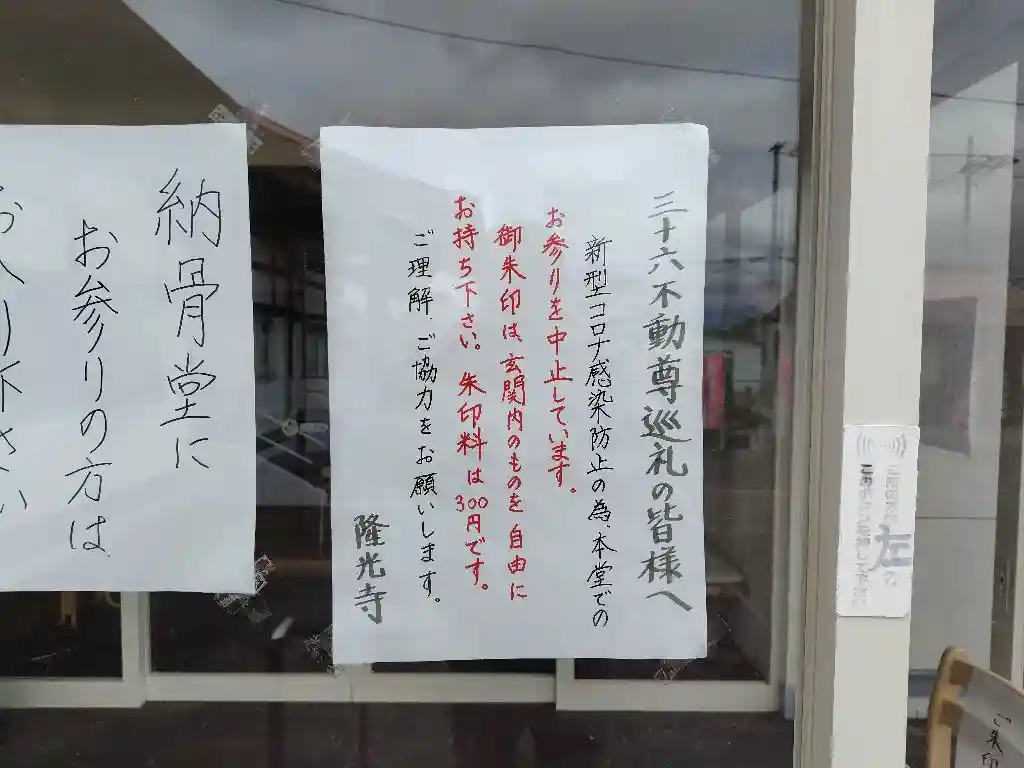 三十六不動尊巡礼の皆様へ
新型コロナ感染防止の為、本堂での
お参りを中止しています。
御朱印は、玄関内のものを自由に
お持ち下さい。朱印料は300円です。
ご理解、ご協力をお願いします。
隆光寺
納骨堂に
お参りの方は
お入り下さい
左の
ご朱印